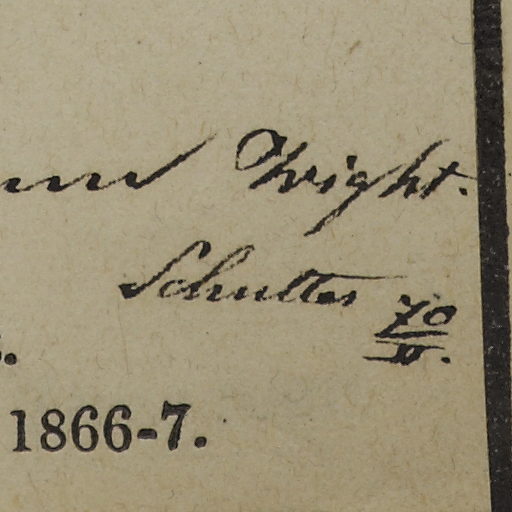 Wight.
Schulter 70/II.
1866-7.